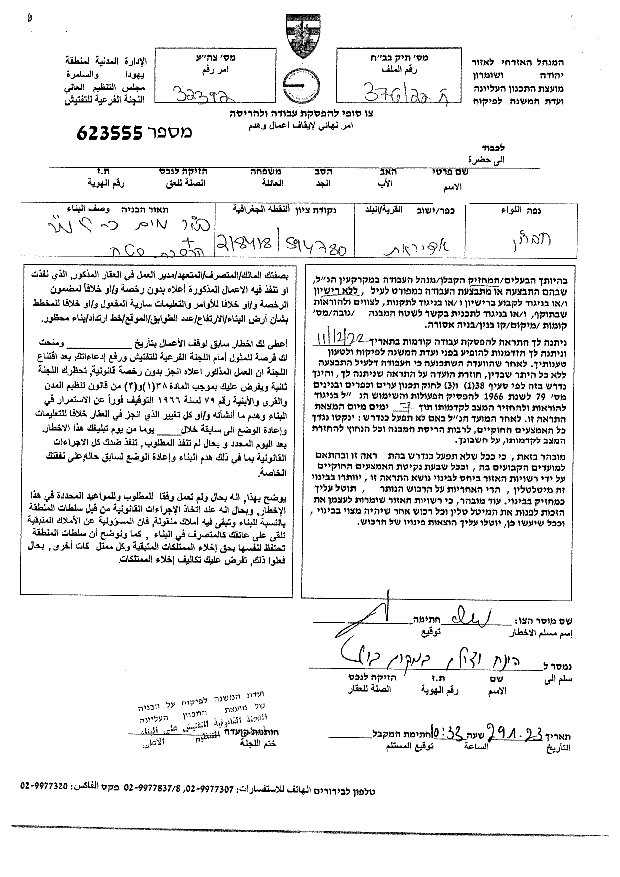 המנהל האזרחי לאזור
יהודה ושומרון
מועצת התכנון העליונה
ועדת המשנה לפיקוח
מס' תיק בב"ח
رقم الملف
מס' צה"ע
امر رقم
32392
الإدارة المدنية لمنطقة
يهودا والسامرة
مجلس التنظيم العالي
اللجنة الفرعية للتفتيش
צו סופי להפסקת עבודה ולהריסה
امر نهائي لايقاف اعمال وهدم
מספר 623555
לכבוד
الى حضرة
שם פרטי האב הסב משפחה הזיקה לנכס ת.ז
الاسم الأب الجد العائلة الصلة للحق رقم الهوية
נפה اللواء
חברון
כפר/ישוב القرية/البلد
נקודת ציון النقطة الجغرافية
218418 / 594780
תאור הבניה وصف البناء
בהיותך הבעלים/המחזיק/הקבלן/מנהל העבודה במקרקעין הנ"ל,
שבהם התבצעה או מתבצעת העבודה כמפורט לעיל, ללא רישיון
ו/או בניגוד לקבוע ברישיון ו/או בניגוד לתקנות, לצווים ולהוראות
שבתוקף, ו/או בניגוד לתכנית בקשר לשטח המבנה / גובה/מס'
קומות /מיקום/קו בנין/בניה אסורה.
ניתנה לך התראה להפסקת עבודה קודמת בתאריך 11/12/22
וניתנה לך הזדמנות להופיע בפני ועדת המשנה לפיקוח ולטעון
טענותיך. לאחר שהוועדה השתכנעה כי העבודה דלעיל התבצעה
ללא כל היתר שבדין, חוזרת הועדה על התראה שניתנה לך, והינך
נדרש בזה לפי סעיף 38(1) ו(3) לחוק תכנון ערים וכפרים ובנינים
מס' 79 לשנת 1966 להפסיק הפעולות והשימוש הנ"ל בניגוד
להוראות ולהחזיר המצב לקדמותו תוך 7 ימים מיום המצאת
התראה זו. לאחר המועד הנ"ל באם לא תפעל כנדרש: ינקטו נגדך
כל האמצעים החוקיים, לרבות הריסת המבנה וכל הנחוץ להחזרת
המצב לקדמותו, על חשבונך.
מובהר בזאת, כי ככל שלא תפעל כנדרש בהתראה זו ובהתאם
למועדים הקבועים בה, וככל שבעת נקיטת האמצעים החוקיים
על ידי רשויות האזור ביחס לבינוי נשוא התראה זו, יוותרו בבינוי
זה מיטלטלין, הרי האחריות על הרכוש הנותר, תוטל עליך
כמחזיק בבינוי. עוד מובהר, כי רשויות האזור שומרות לעצמן את
הזכות לפנות את המיטלטלין וכל רכוש אחר שיהיה מצוי בבינוי,
וככל שיעשו כן, יוטלו עליך הוצאות פינויו של הרכוש.
بصفتك المالك/المتصرف/المتعهد/مدير العمل في العقار المذكور، الذي نفذت
او تنفذ فيه الاعمال المذكورة أعلاه بدون رخصة و/او خلافاً لمضمون
الرخصة و/او خلافا للأوامر والتعليمات سارية المفعول و/او خلافا للمخطط
بشأن أرض البناء/الارتفاع/عدد الطوابق/الموقع/خط ارتداد/بناء محظور.
أعطي لك اخطار سابق لوقف الأعمال بتاريخ ومنحت
لك فرصة للمثول أمام اللجنة الفرعية للتفتيش ورفع إدعاءاتك بعد اقتناع
اللجنة ان العمل المذكور اعلاه انجز بدون رخصة قانونية، تحظرك اللجنة
ثانية ويفرض عليك بموجب المادة ٣٨(١)و(٣) من قانون تنظيم المدن
والقرى والأبنية رقم ٧٩ لسنة ١٩٦٦ التوقيف فوراً عن الاستمرار في
البناء وهدم ما أنشأته و/او كل تغيير الذي انجز في العقار خلافا للتعليمات
وإعادة الوضع الى سابقه خلال يوما من يوم تبليغك هذا الاخطار.
بعد اليوم المحدد و بحال لم تنفذ المطلوب، تنفذ ضدك كل الاجراءات
القانونية بما في ذلك هدم البناء وإعادة الوضع لسابق حاله على نفقتك
الخاصة.
يوضح بهذا، انه بحال ولم تعمل وفقا للمطلوب وللمواعيد المحددة في هذا
الإخطار، وبحال انه عند إتخاذ الإجراءات القانونية من قبل سلطات المنطقة
بالنسبة للبناء وتبقى فيه أملاك منقولة، فان المسؤولية عن الأملاك المتبقية
تلقى على عاتقك كالمتصرف في البناء. كما ونوضح أن سلطات المنطقة
تحتفظ لنفسها بحق إخلاء الممتلكات المتبقية وكل ممتلكات أخرى، بحال
فعلوا ذلك، تفرض عليك تكاليف إخلاء الممتلكات.
שם מוסר הצו: חתימה
إسم مسلم الاخطار توقيع
נמסר ל
سلم الى
שם ת.ז הזיקה לנכס
الاسم رقم الهوية الصلة للعقار
תאריך 29.1.23 שעה 10:33 חתימת המקבל
التاريخ الساعة توقيع المستلم
ועדת המשנה לפיקוח על הבניה
של מועצת התכנון העליונה
חותמת הועדה
ختم اللجنة
טלפון לבירורים الهاتف للاستفسارات: 02-9977307, 02-9977837/8 פקס الفاكس: 02-9977320